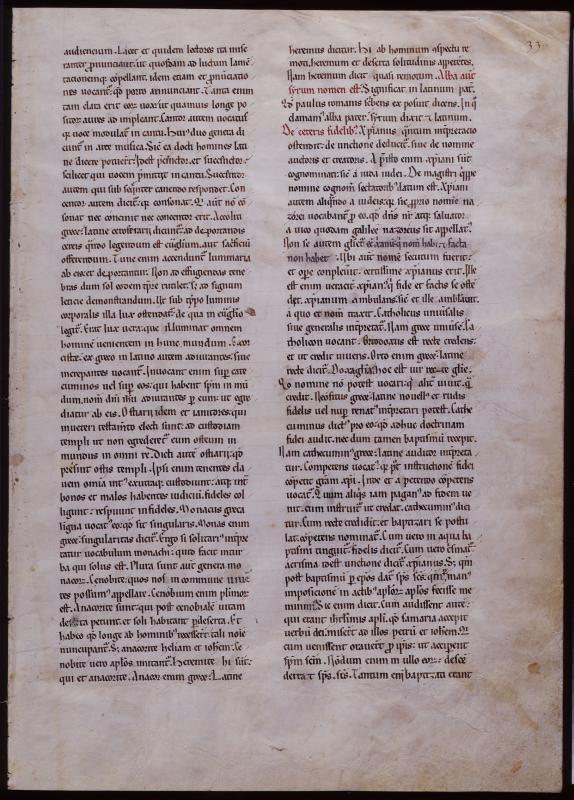 33
audientium. Licet et quidem lectores ita mise
ranter pronuntiant: ut quosdam ad ludum lamē
tationemque cōpellant. idem etiam et pronūtiatio
nes vocant: qđ porro annunciant. Tanta enim
tam clara erit eorum vox: ut quamuis longe po
sitor aures adimpleant. Cantor autem vocatus
quia vocē modulat in cantu. Huius duo genera di
cunt in arte musica. Sic ea docti hominis lati
ne dicere potuerunt: Hoc est p̄cinctor. et succentor.
scilicet qui vocem p̄mittit in cantu. Succentor
autem qui subsequenter canendo respondet. Con
centor autem dicit: qui consonat. Qui aut̄ nō cō
sonat nec concinit nec concentor erit. Acoliti
grece: latine ceroferarii dicunt: ad deportandis
cereis quando legendum est euglium. aut sacficiū
offerendum. Tunc enim accendunt luminaria
ab eis: et deportantur. Non ad effugiendas tene
bras dum sol eodem tp̄re rutilet: sed ad signum
leticie demonstrandum. Ut sub typo luminis
corporalis illa lux ostendat de qua in euglio
legit. Erat lux uera: que illuminat omnem
hominem uenientem in hunc mundum. Exor
ciste. ex greco in latino autem adiurantes. siue
increpantes uocant. Inuocant enim super cate
cuminos uel super eos: qui habent spm̄ in mū
dum. nomē dni ihu adiurantes per eum: ut egre
diatur ab eis. Ostiarii idem et ianitores. qui
in ueteri testamēto electi sunt: ad custodiam
templi ut non egrederet eum ostium in
mundus in omni re. Dicti autē ostiarii: qđ
presint ostiis templi. Ipsi enim tenentes cla
uem omnia intus extraque custodiunt: atque int
bonos et malos habentes iudiciū. fideles col
ligunt: respuunt infideles. Monacus greca
ligua uocat eo qđ sit singularis. Monas enim
grece. singularitas dicit. Ergo si solitarius inp̄re
tatur uocabulum monachi: quid facit intur
ba qui solus est. Plura sunt autē genera mo
nacor. Cenobite. quos nos in commune uiuen
tes possumus appellare. Cenobium enim plurimor
est. Anacorite sunt: qui post cenobialē uitam
deserta petunt. et soli habitant per deserta. Et
habeo qđ longe ab hominibus recesserit. tali noīe
nuncupant. Sed anacorite heliam et iohem: ce
nobite uero aplos imitant. Heremite hi sunt:
qui et anacorite. Anacor enim grece: Latine
heremus dicitur. Hi ab hominum cōspectu re
moti. heremum et deserta solitudinis appetentes.
Nam heremum dicit quasi remotum. Abba aut
syrum nomen est. Significat in latinum pat.
Qđ paulus romanis scribens exposuit dicens. In quo
clamamus abba pater. syrum dixit et latinum.
De ceteris fidelibus. Xpianus quantum inp̄retatio
ostendit: de unctione deducit. siue de nomine
auctoris et creatoris. A xpisto enim xpiani sunt
cognominati: sic a iuda iudei. De magistri quippe
nomine cognom̄ sectatoribus latum est. Xpiani
autem aliquando a iudeis: quasi oprobrio nomine na
zorei uocabant pro eo qđ dns nr̄ atque saluator
a uico quodam galilee nazoreus sit appellatus.
Non se autem gliet xpianum qui nom̄ habet et facta
non habet. Ubi aut nomē secutum fuerit:
et ope conpleuit: certissime xpianus erit. Ille
est enim ueraciter xpianus qui fide et factis se ostē
det: xpianum ambulans. sic et ille ambulauit.
a quo et nom̄ traxit. Catholicus uniuersalis
siue generalis inp̄retat. Nam grece uniuersa: ca
tholicon uocant. Ortodoxus est recte credens:
et ut credit uiuens. Orto enim grece: latine
recte dicit. Doxa glīa hoc est uir recte glie.
Quo nomine nō potest uocari: qui aliter uiuit. quam
credit. Neofitus grece: latine nouellus et rudis
fidelis uel nuper renatus interpretari potest. Cathe
cuminus dictus pro eo qđ adhuc doctrinam
fidei audit. nec dum tamen baptismū recepit.
Nam cathecuminus grece: latine auditor inp̄reta
tur. Competens uocat: quia post instructionē fidei
cōpetit gr̄am xpi. Inde et a petendo cōpetens
uocat. Quum aliquis iam paganus ad fidem ue
nit. cum instruit ut credat. cathecuminus dici
tur. Cum recte credidit: et baptizari se postu
lat. cōpetens nominat. Cum uero in aqua ba
ptismi tinguit: fidelis dicit. Cum uero crismat
acrisma id est unctione dicit xpianus. Sed quia
post baptismū per epos dat sps scs. cum manus
imposicione in actibus aplor. aplos fecisse me
minimus. Sic enim dicit. Cum audissent aute
qui erant ihrlimis apli. qđ samaria accepit
uerbū dei: miserunt ad illos petrum et iohem. Qui
cum uenissent orauerunt pro ipsis: ut acciperent
spm̄ scm̄. Nōdum enim in ullo eorum descē
derat sps. scs. Tantum enim baptizati erant